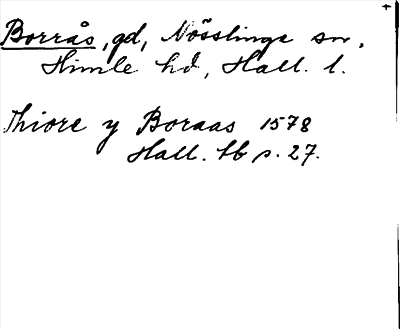 Borrås, gd, Nösslinge sn,
Himle hd, Hall. l.
Thiore y Boraas 1578
Hall. tb s. 27.